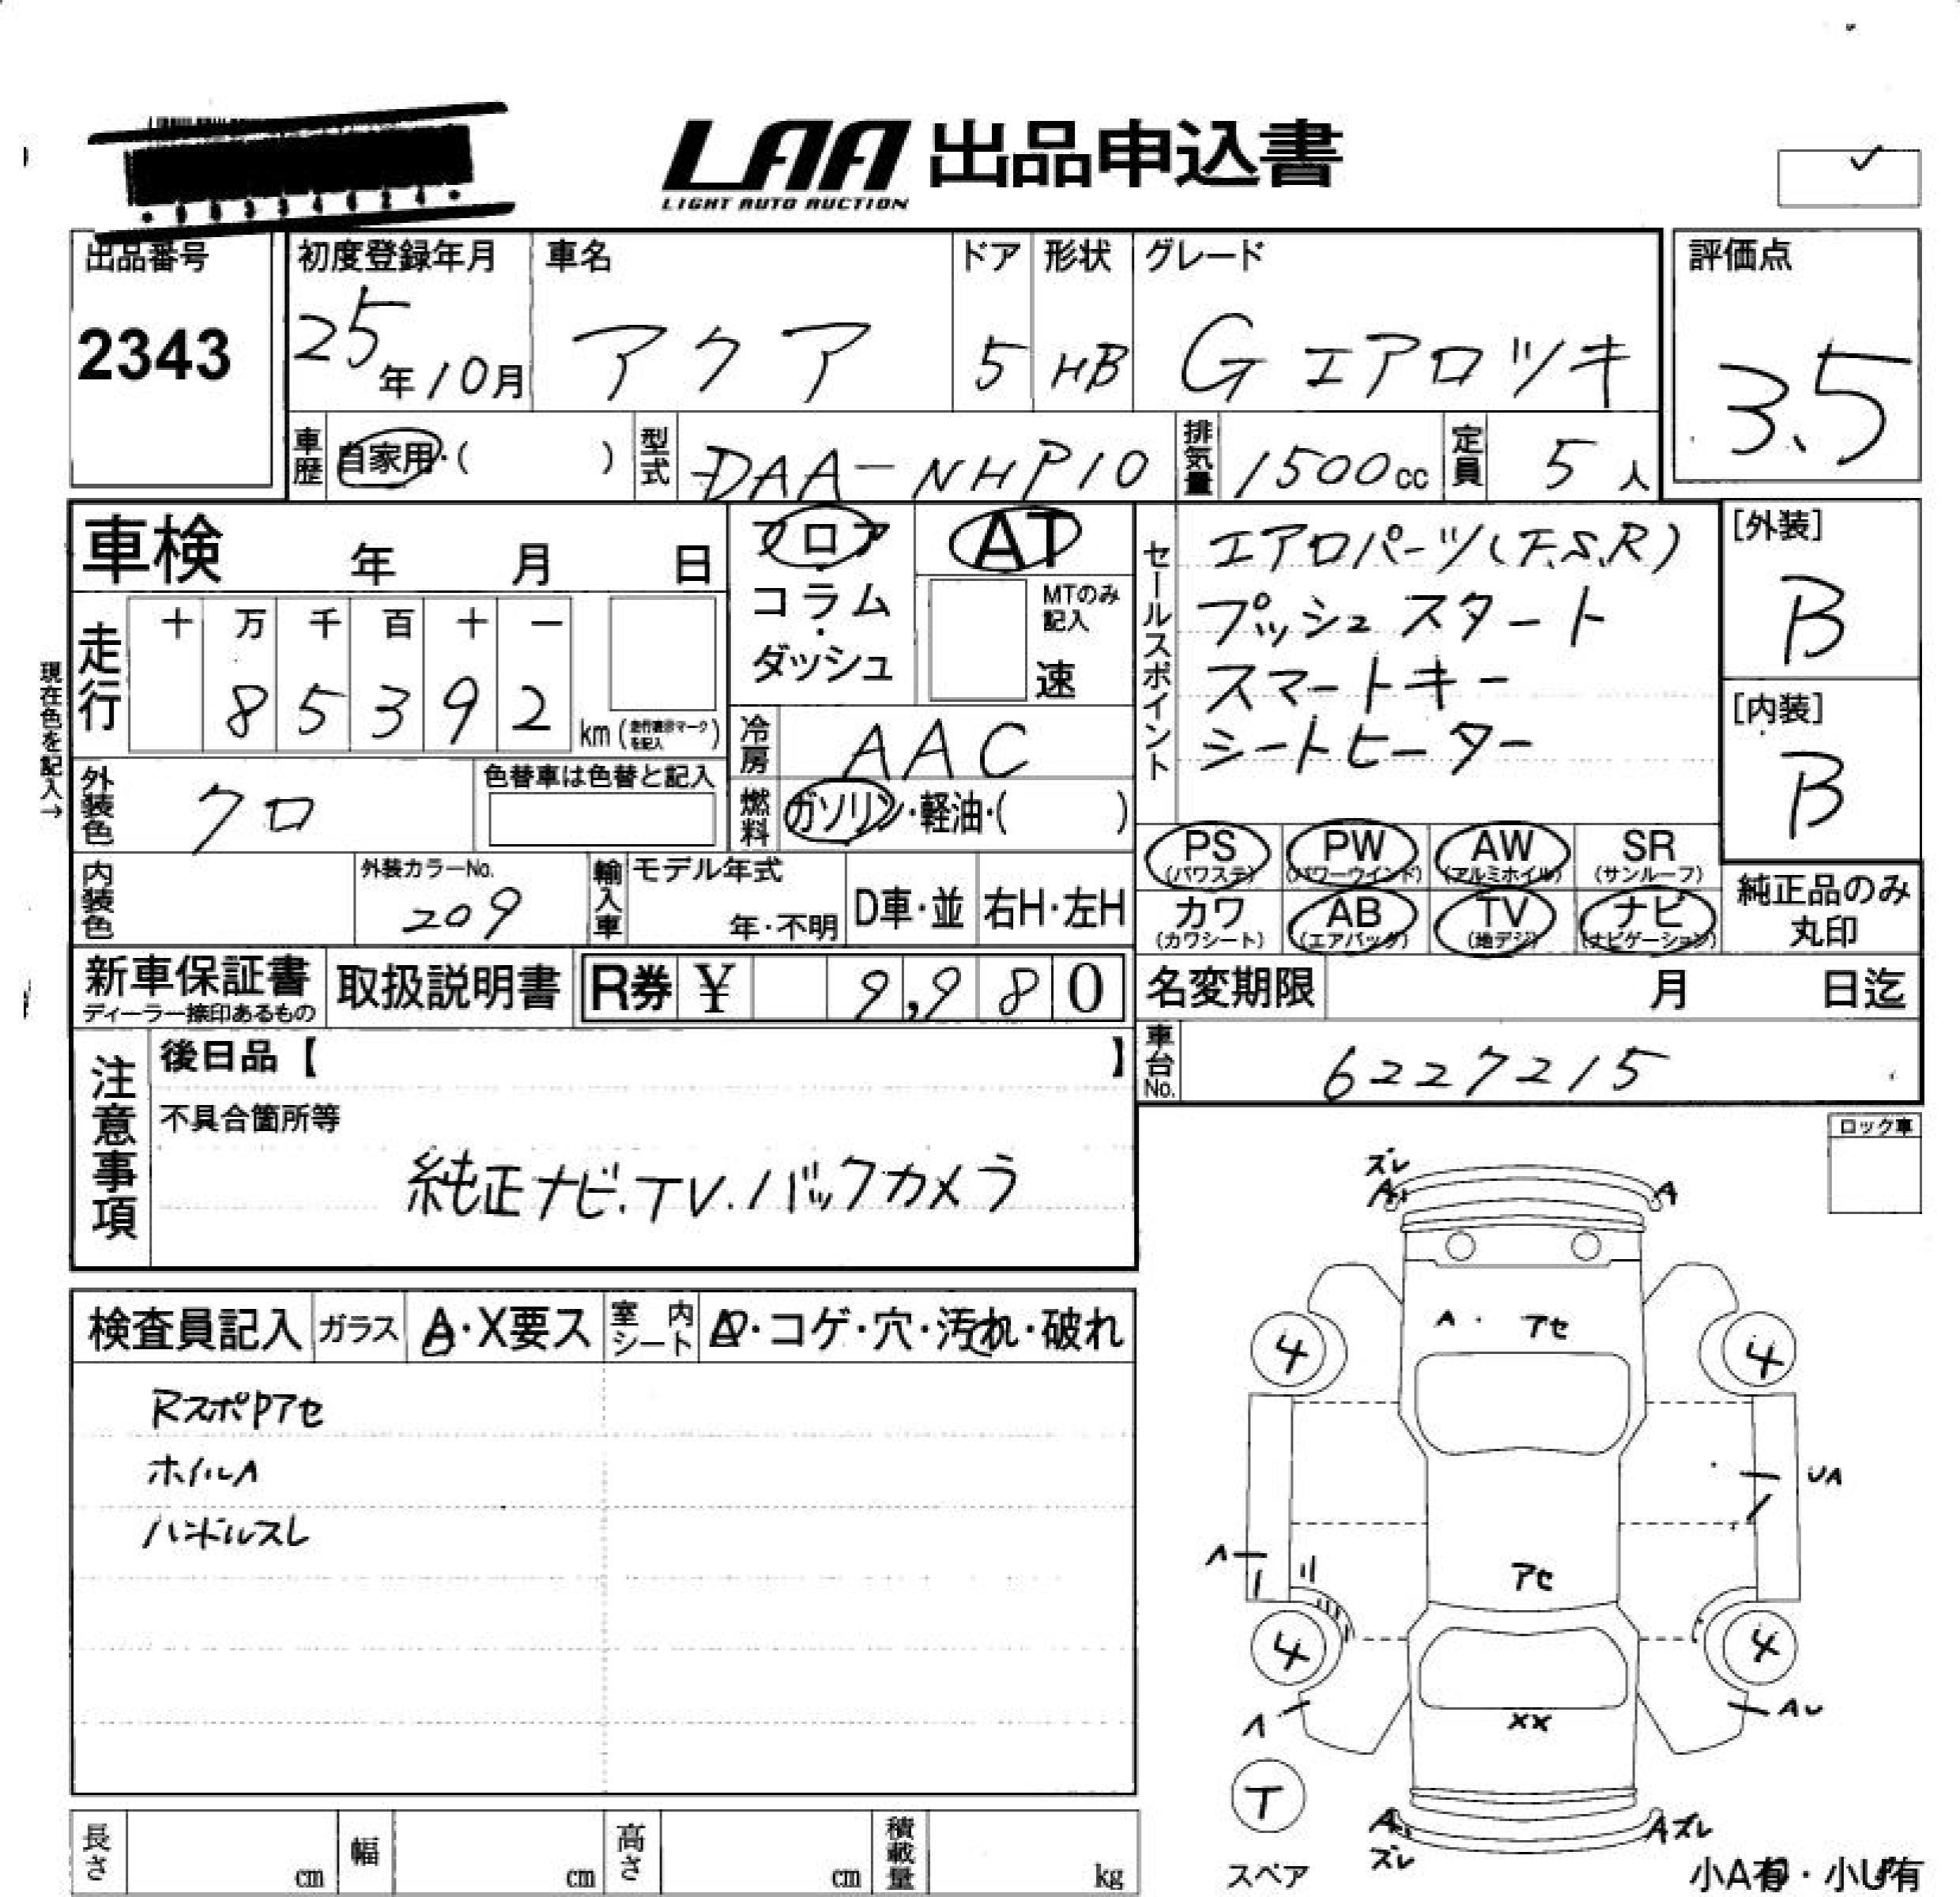 LAA 出品申込書
LIGHT AUTO AUCTION
出品番号
2343
初度登録年月
25年10月
車名
アクア
ドア
5
形状
HB
グレード
G エアロツキ
評価点
3.5
車歴
自家用・( )
型式
DAA-NHP10
排気量
1500cc
定員
5人
車検 年 月 日
フロア
コラム・
ダッシュ
AT
MTのみ
記入
速
セールスポイント
エアロパーツ(F.S.R)
プッシュスタート
スマートキー
シートヒーター
[外装]
B
[内装]
B
現在色を記入→
走行
十 万 千 百 十 一
8 5 3 9 2 km (走行表示マークを記入)
冷房
AAC
燃料
ガソリン・軽油・( )
外装色
クロ
色替車は色替と記入
PS
(パワステ)
PW
(パワーウインド)
AW
(アルミホイル)
SR
(サンルーフ)
カワ
(カワシート)
AB
(エアバック)
TV
(地デジ)
ナビ
(ナビゲーション)
純正品のみ
丸印
内装色
外装カラーNo.
209
輸入車
モデル年式
年・不明
D車・並
右H・左H
新車保証書
ディーラー捺印あるもの
取扱説明書
R券 ¥ 9,980
名変期限 月 日迄
車台No.
6227215
注意事項
後日品【 】
不具合箇所等
純正ナビ.TV.バックカメラ
ロック車
検査員記入
ガラス
A・X要ス
室内シート
・コゲ・穴・汚れ・破れ
RスポPアセ
ホイルA
ハンドルスレ
ズレ
A
A
A・アセ
4
4
UA
A
アセ
4
4
A
AU
XX
T
スペア
A
ズレ
Aズレ
小A有・小U有
長さ cm
幅 cm
高さ cm
積載量 kg